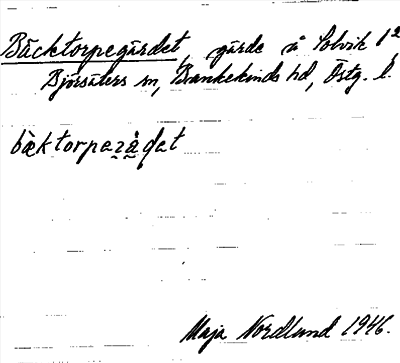 Bäcktorpegärdet, gärde å Solvik 1²
Björsäters sn, Bankekinds hd, Östg. l.
bæktorpeʐä̱ḍet
Maja Nordlund 1946.